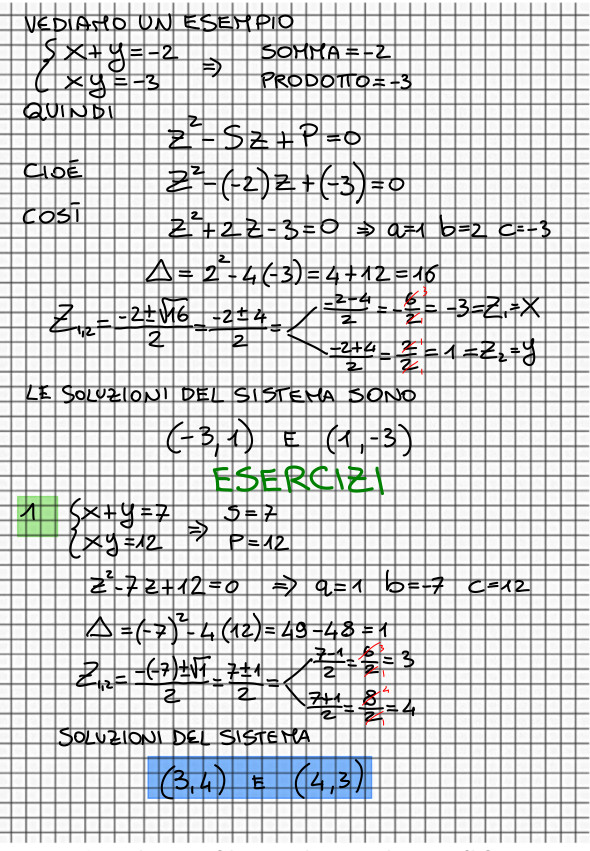 VEDIAMO UN ESEMPIO
{ x+y=-2 SOMMA=-2
{ xy=-3 ⇒ PRODOTTO=-3
QUINDI
z²-Sz+P=0
CIOÈ z²-(-2)z+(-3)=0
COSÌ z²+2z-3=0 ⇒ a=1 b=2 c=-3
Δ=2²-4(-3)=4+12=16
Z₁,₂=(-2±√16)/2=(-2±4)/2= (-2-4)/2=-6/2=-3=Z₁=X
(-2+4)/2=2/2=1=Z₂=y
LE SOLUZIONI DEL SISTEMA SONO
(-3,1) E (1,-3)
ESERCIZI
1 { x+y=7 S=7
{ xy=12 ⇒ P=12
z²-7z+12=0 ⇒ a=1 b=-7 c=12
Δ=(-7)²-4(12)=49-48=1
Z₁,₂=(-(-7)±√1)/2=(7±1)/2= (7-1)/2=6/2=3
(7+1)/2=8/2=4
SOLUZIONI DEL SISTEMA
(3,4) E (4,3)